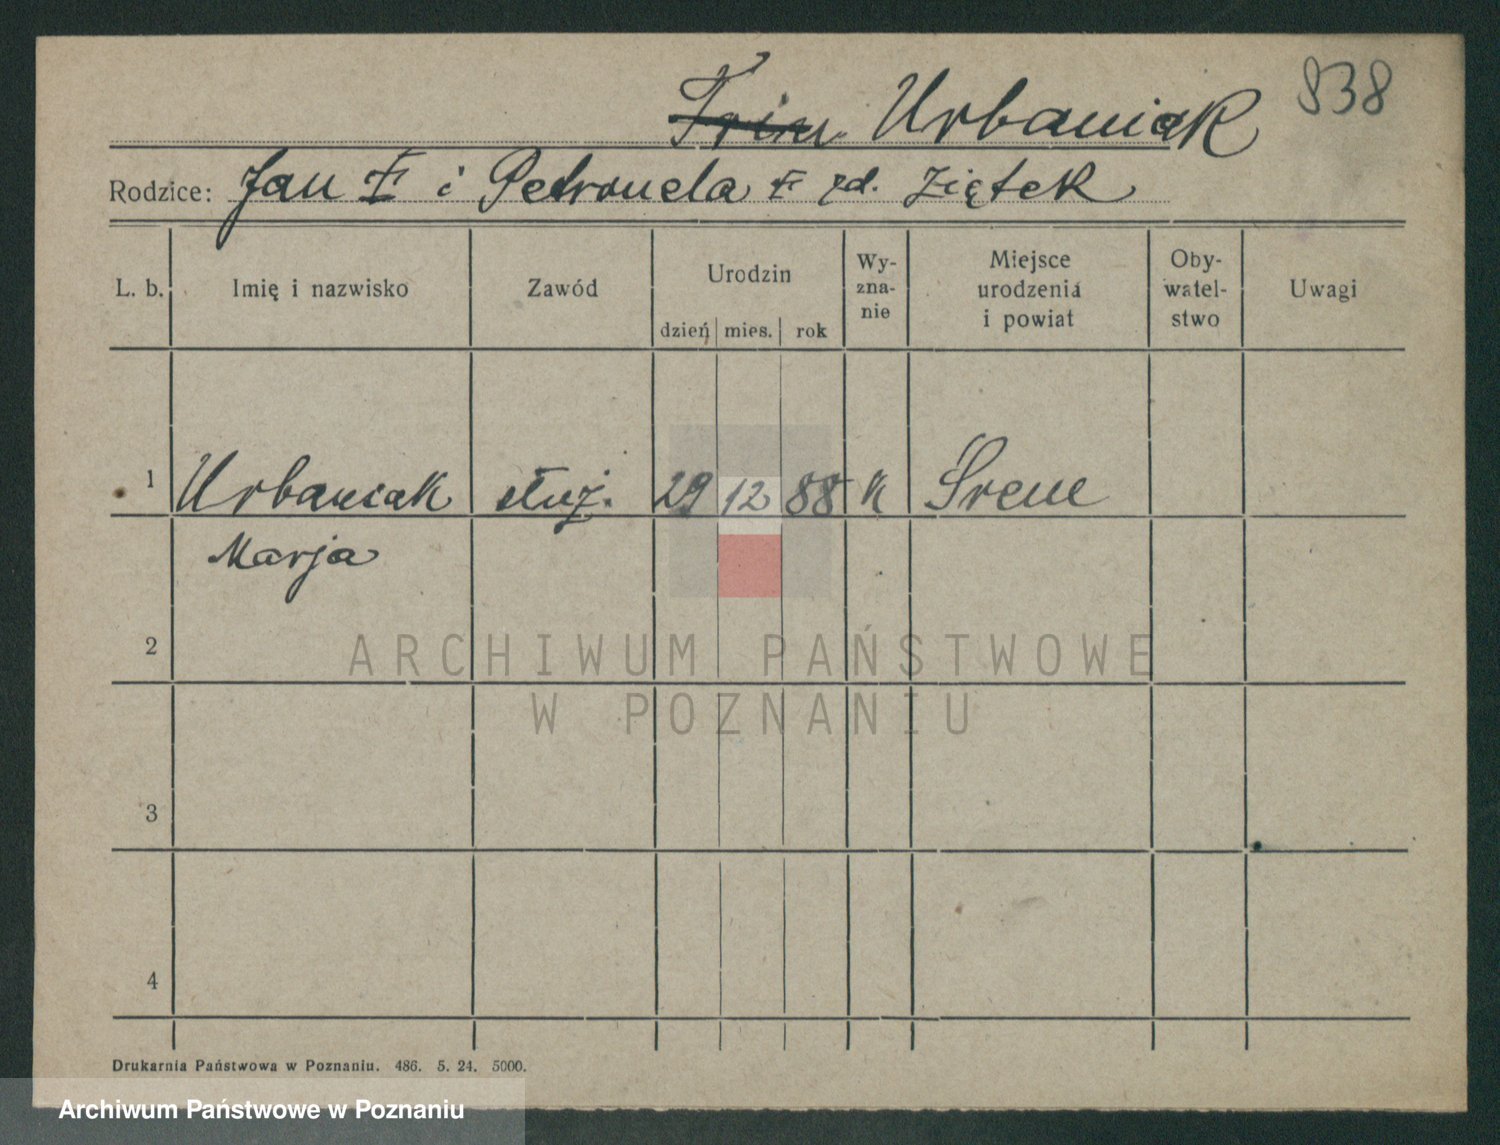 838
Urbaniak
Rodzice: Jan † i Petronela † zd. Ziętek
L. b. Imię i nazwisko Zawód Urodzin dzień mies. rok Wy-zna-nie Miejsce urodzenia i powiat Oby-watel-stwo Uwagi
1 Urbaniak służ. 29 12 88 k Śrem
Marja
2
ARCHIWUM PAŃSTWOWE
W POZNANIU
3
4
Drukarnia Państwowa w Poznaniu. 486. 5. 24. 5000.
Archiwum Państwowe w Poznaniu